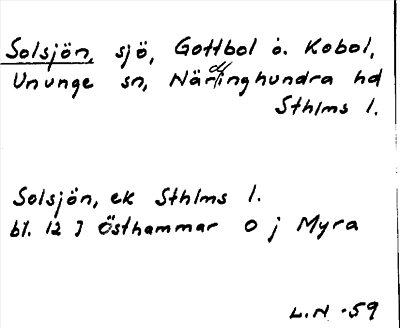 Solsjön, sjö, Gottbol o. Kobol,
Ununge sn, Närdinghundra hd
Sthlms l.
Solsjön, ek Sthlms l.
bl. 12 J Östhammar O j Myra
L.N. -59